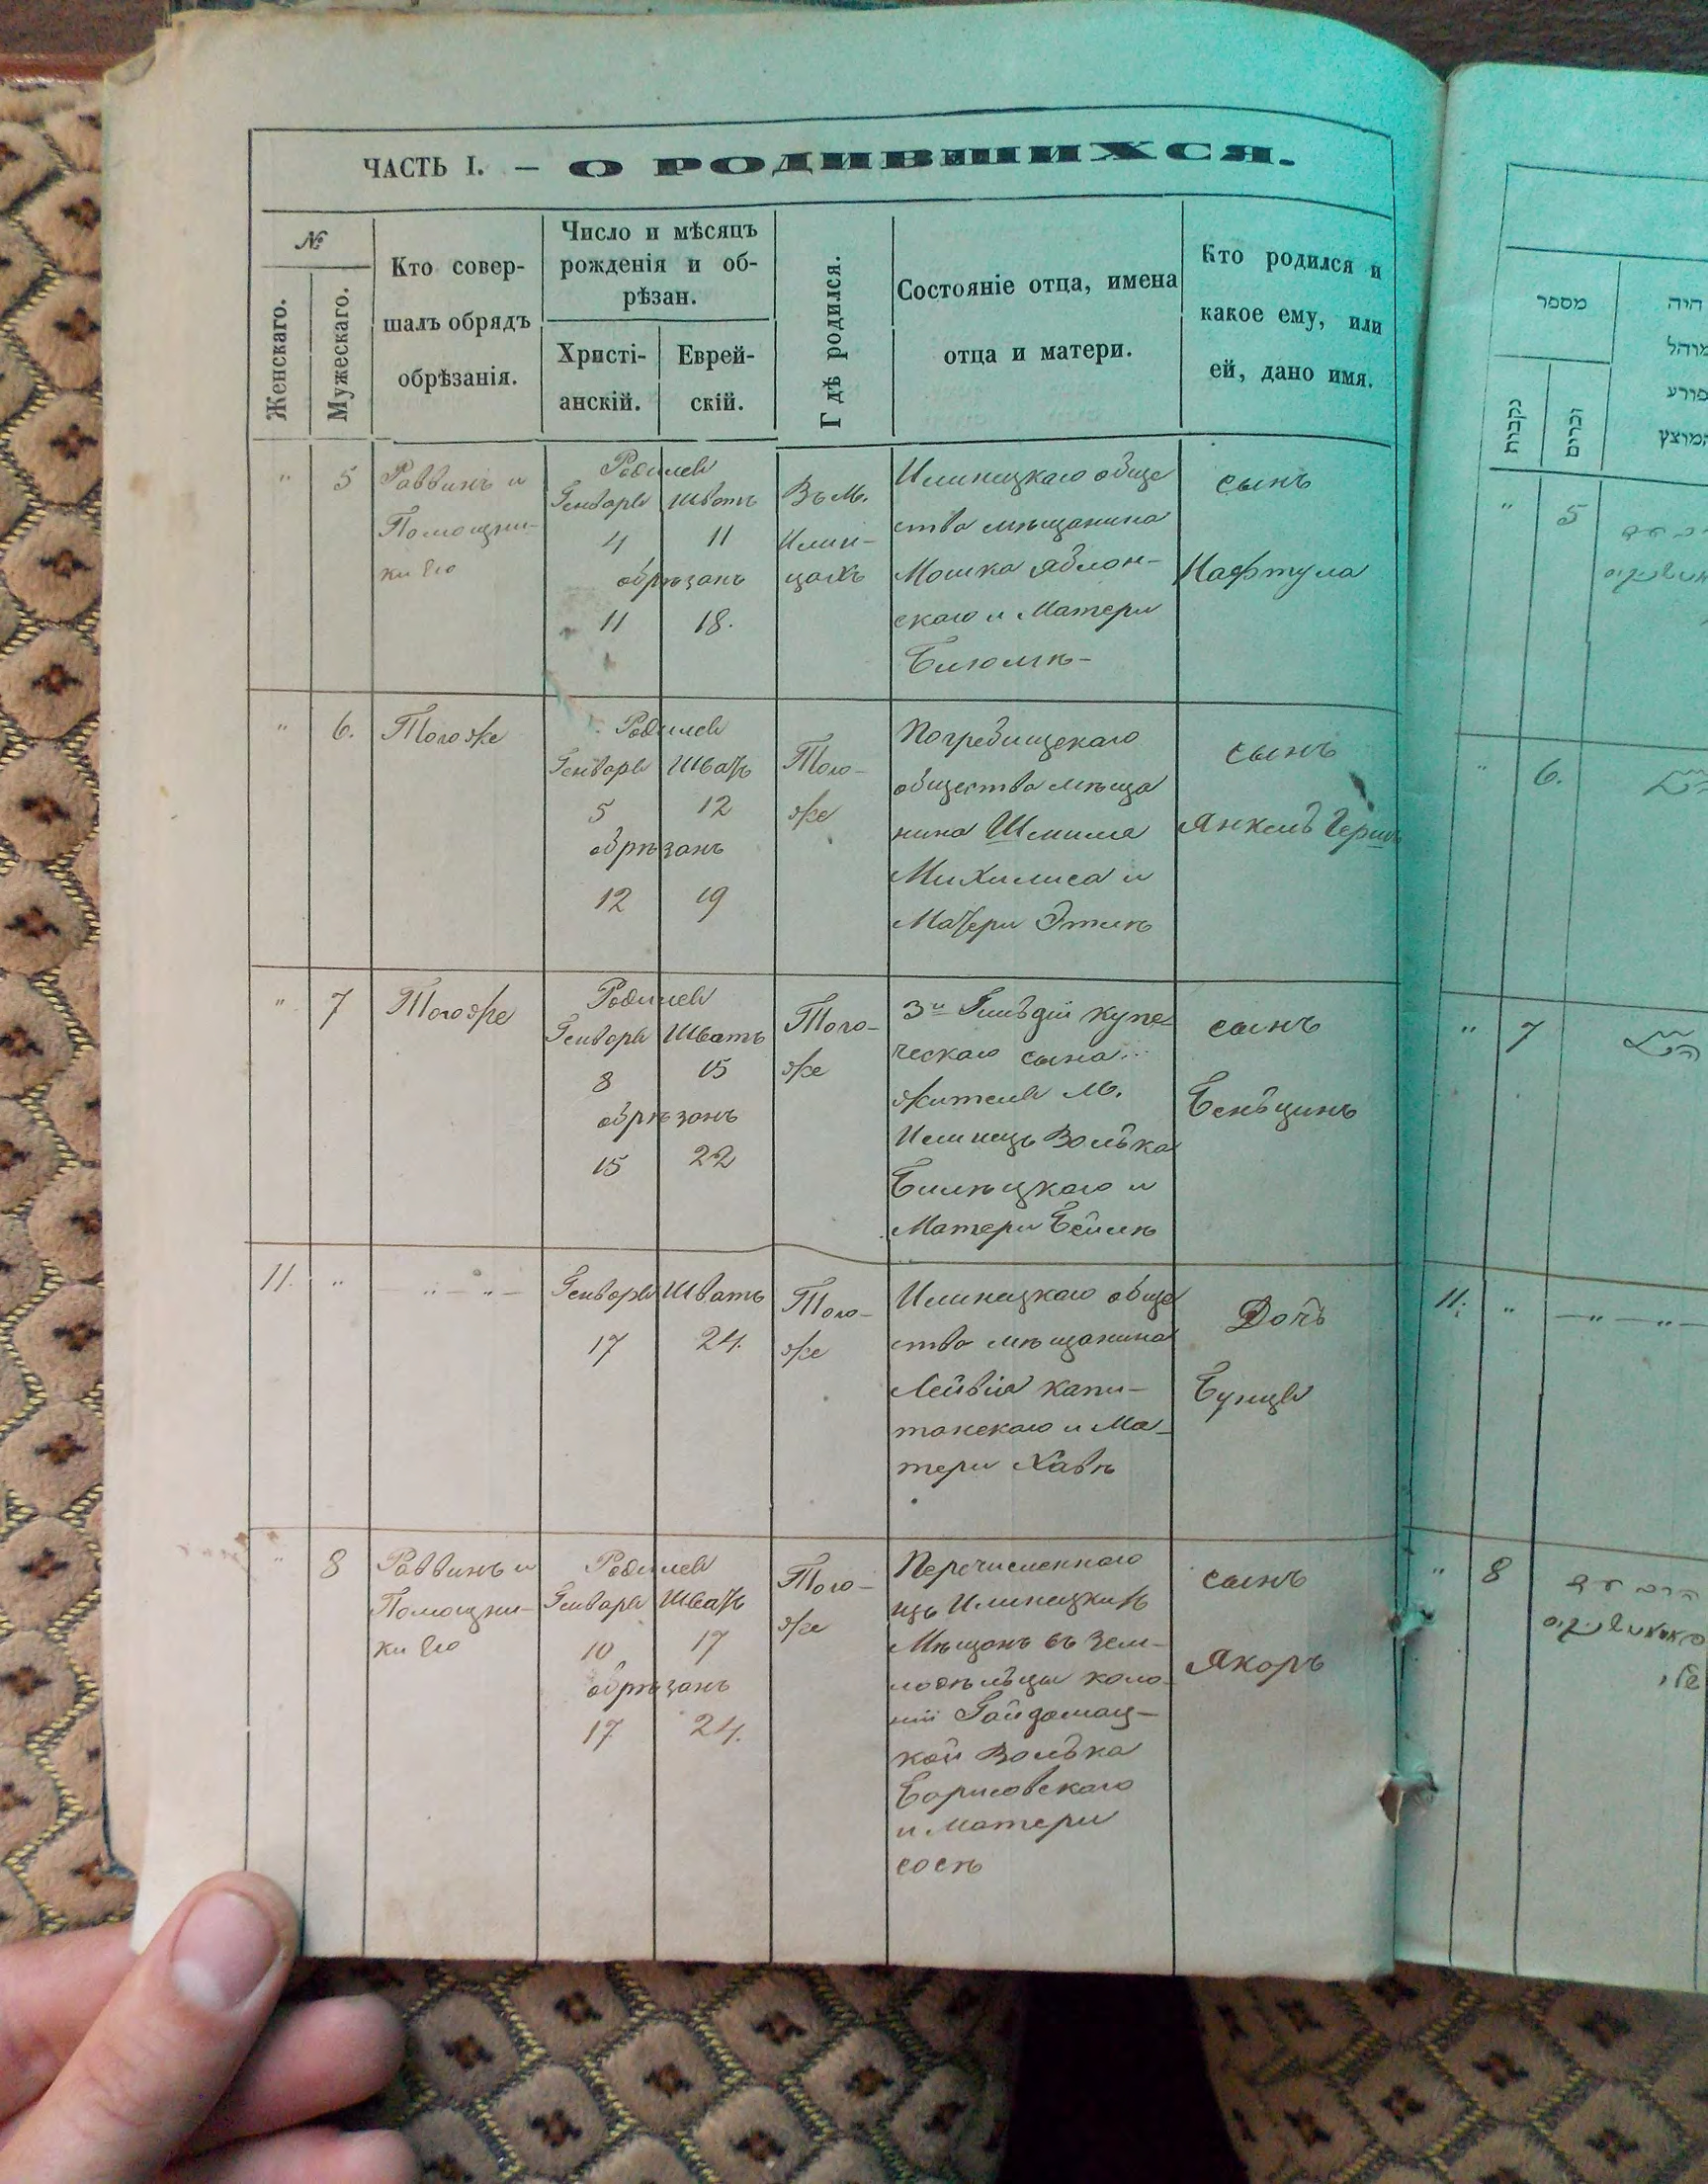 ЧАСТЬ I. — О РОДИВШИХСЯ.
№
Женскаго.
Мужескаго.
Кто совер-
шалъ обрядъ
обрѣзанія.
Число и мѣсяцъ
рожденія и об-
рѣзан.
Христі-
анскій.
Еврей-
скій.
Гдѣ родился.
Состояніе отца, имена
отца и матери.
Кто родился и
какое ему, или
ей, дано имя.
" 5
Раввинъ и
Помощни-
ки Его
Родился
Генваря Шватъ
4 11
обрѣзанъ
11 18.
Въ М.
Илин-
цахъ
Илинецкаго обще
ства мѣщанина
Мошка Яблон-
скаго и Матери
Блюмѣ-
сынъ
Нафтула
" 6.
Тогоже
Родился
Генваря Шватъ
5 12
обрѣзанъ
12 19
Того-
же
Погребищскаго
общества мѣща
нина Шмиля
Михилиса и
Матери Этикѣ
сынъ
Янкель Гершъ
" 7
Тогоже
Родился
Генваря Шватъ
8 15
обрѣзанъ
15 22
Того-
же
3й Гильдіи купе
ческаго сына
жителя М.
Илинецъ Волька
Билѣцкаго и
Матери Бейлѣ
сынъ
Беньцинъ
11. "
— " — " —
Генваря Шватъ
17 24.
Того-
же
Илинецкаго обще
ства мѣщанина
Лейвія Капи-
танскаго и Ма-
тери Хавѣ
Дочь
Бунця
" 8
Раввинъ и
Помощни-
ки Его
Родился
Генваря Шватъ
10 17
обрѣзанъ
17 24.
Того-
же
Перечисленнаго
изъ Илинецкихъ
Мѣщанъ въ Зем-
лодѣльцы коло-
ніи Гайдамац-
кой Волька
Борисовскаго
и Матери
Сосѣ
сынъ
Якоръ
מספר
נקבות
זכרים
היה
פורע
" 5
" 6.
" 7
11. "
— " — " —
" 8